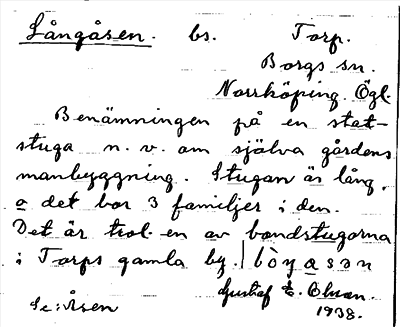 Långåsen. bs. Torp.
Borgs sn.
Norrköping. Ögl.
Benämningen på en stat-
stuga n. v. om själva gårdens
manbyggning. Stugan är lång,
o det bor 3 familjer i den.
Det är trol. en av bondstugorna
i Torps gamla by. | 
Gustaf E. Olsson.
Se: Åsen 1938.